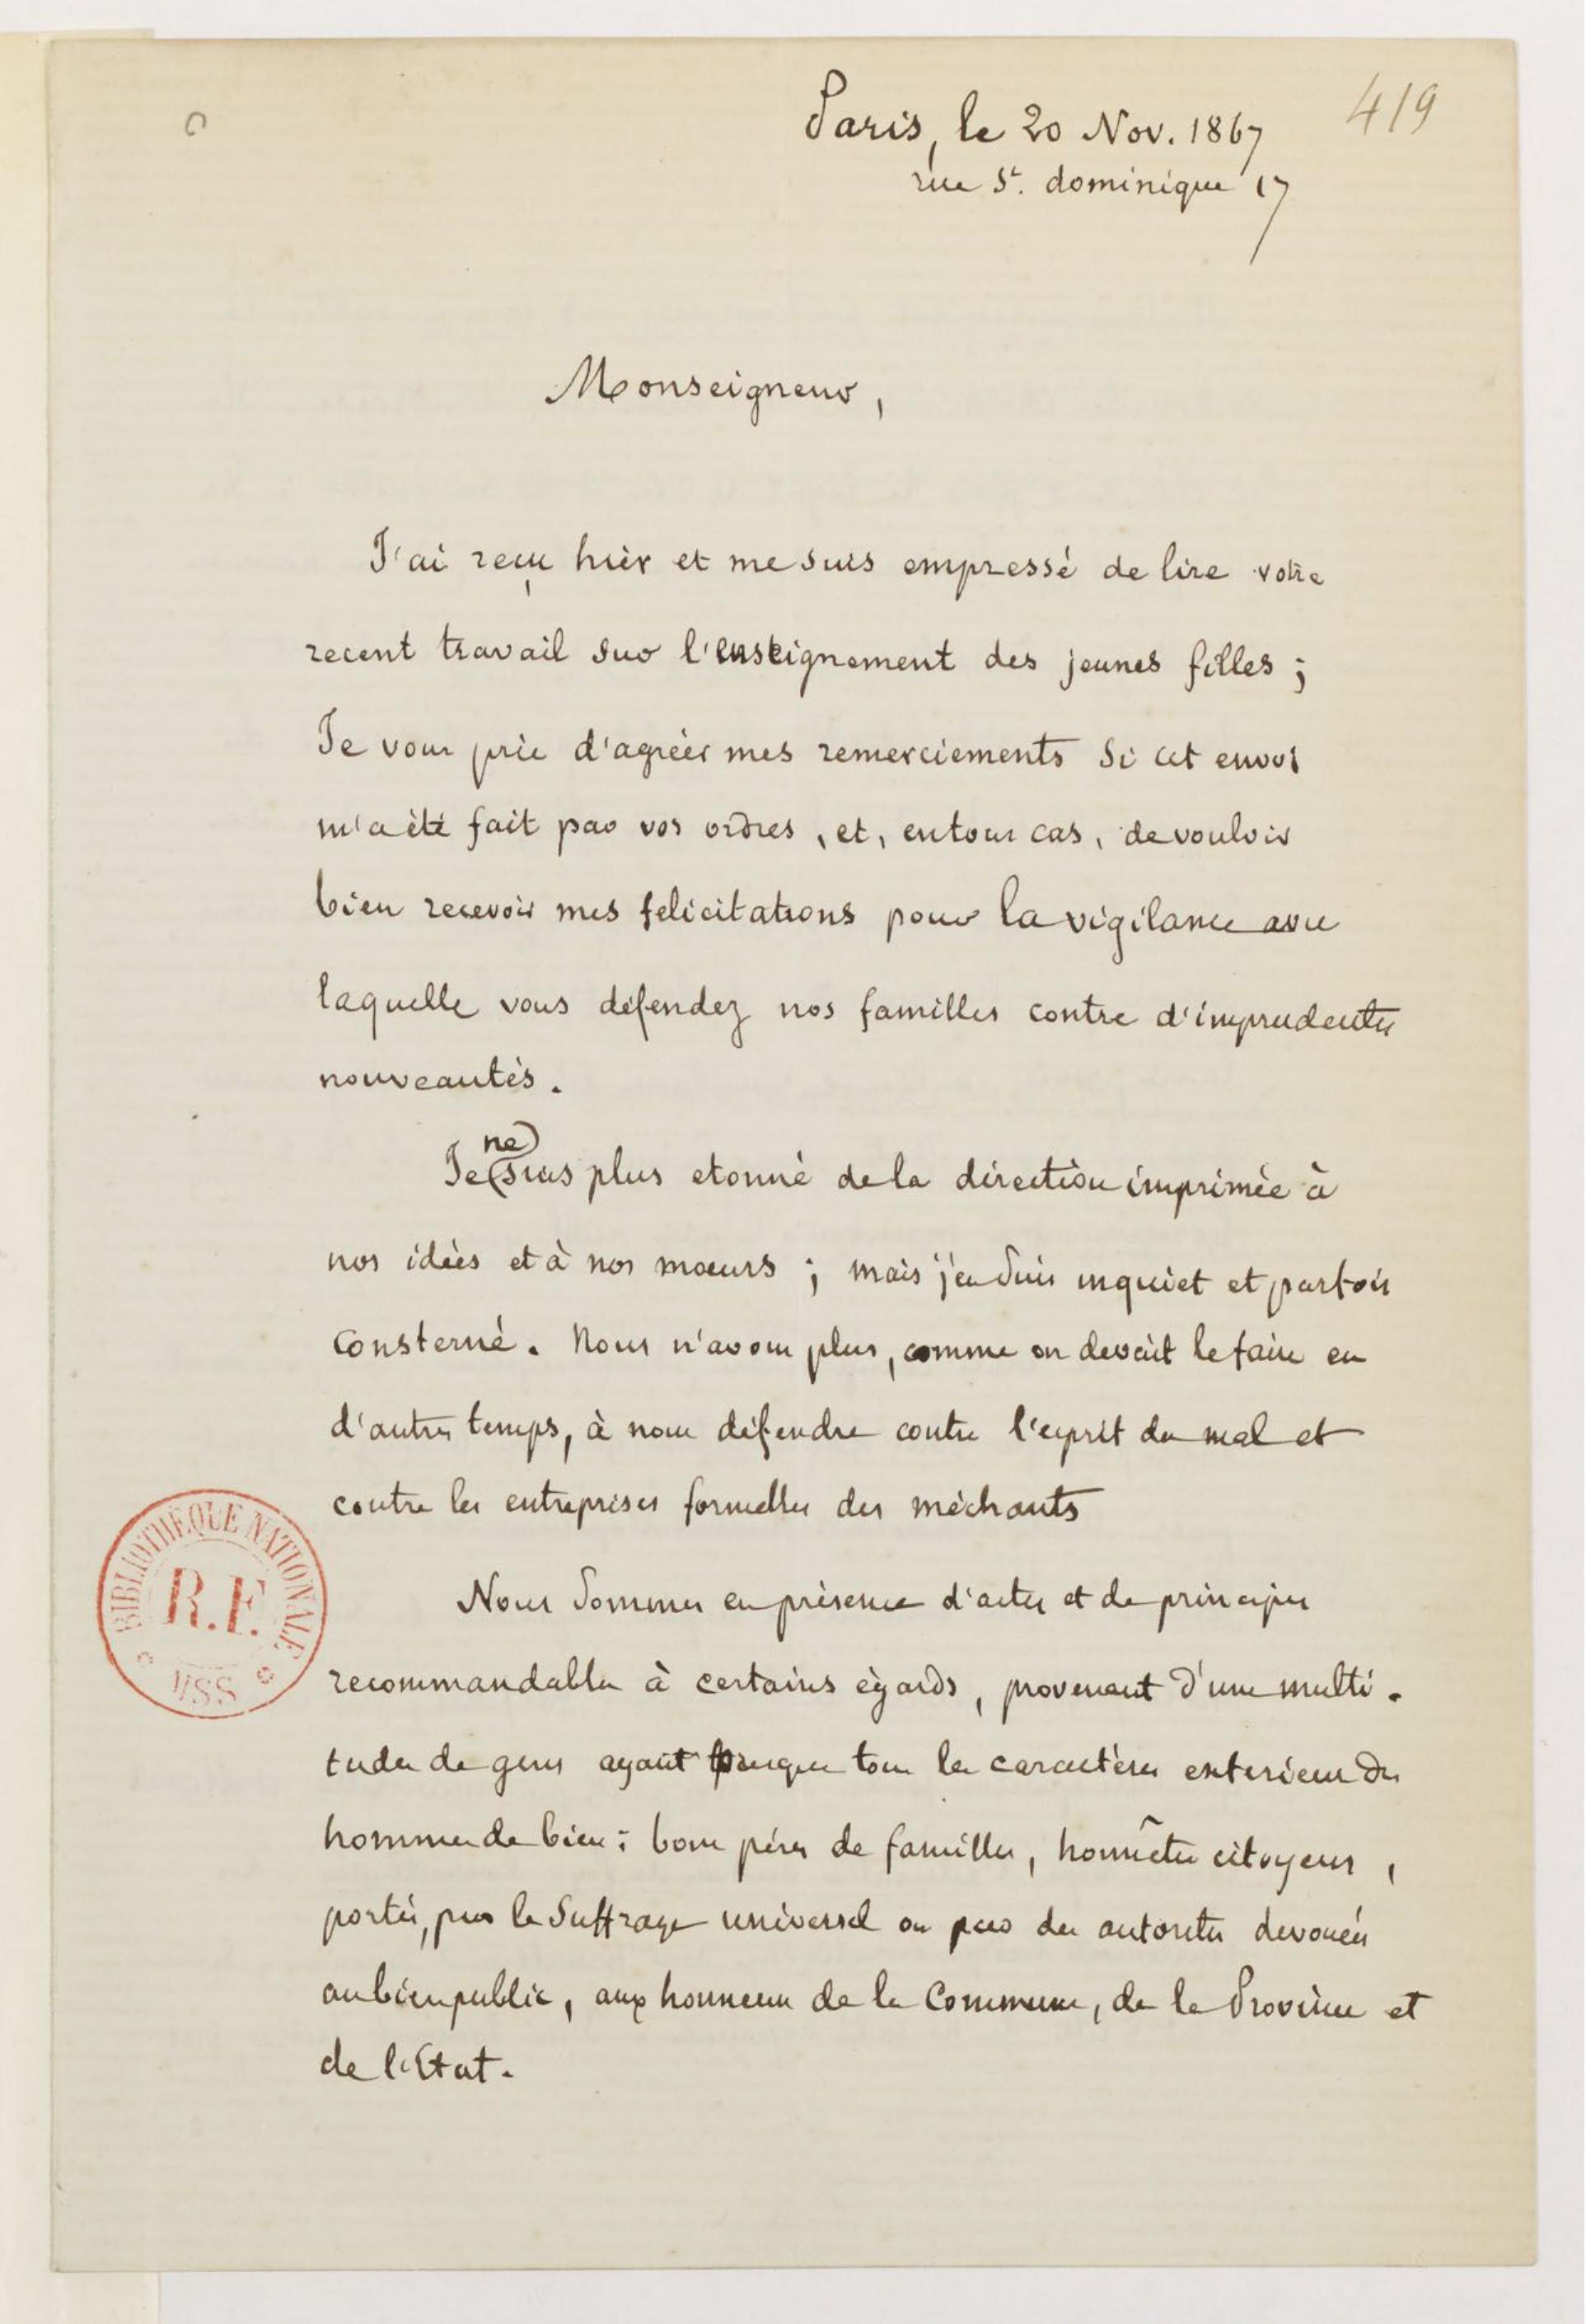 419
Paris, le 20 Nov. 1867
rue St. dominique 17
Monseigneur,
J'ai reçu hièr et me suis empressé de lire votre
recent travail sur l'enseignement des jeunes filles ;
Je vous prie d'agréer mes remerciements Si cet envoi
m'a été fait par vos ordres, et, en tous cas, de vouloir
bien recevoir mes felicitations pour la vigilance avec
laquelle vous défendez nos familles contre d'imprudentes
nouveautés.
Je ne suis plus etonné de la direction imprimée à
nos idées et à nos moeurs ; mais j'en suis inquiet et parfois
Consterné. Nous n'avons plus, comme on devait le faire en
d'autres temps, à nous défendre contre l'esprit du mal et
contre les entreprises formelles des méchants
Nous Sommes en présence d'actes et de principes
recommandables à certains égards, provenant d'une multi-
tude de gens ayant presque tous les caractères exterieurs des
hommes de bien : bons péres de familles, honnêtes citoyens,
portés, par le Suffrage universel ou par des autorités devouées
au bien public, aux honneurs de la Commune, de la Province et
de l'Etat.
BIBLIOTHÈQUE NATIONALE
R.F.
MSS